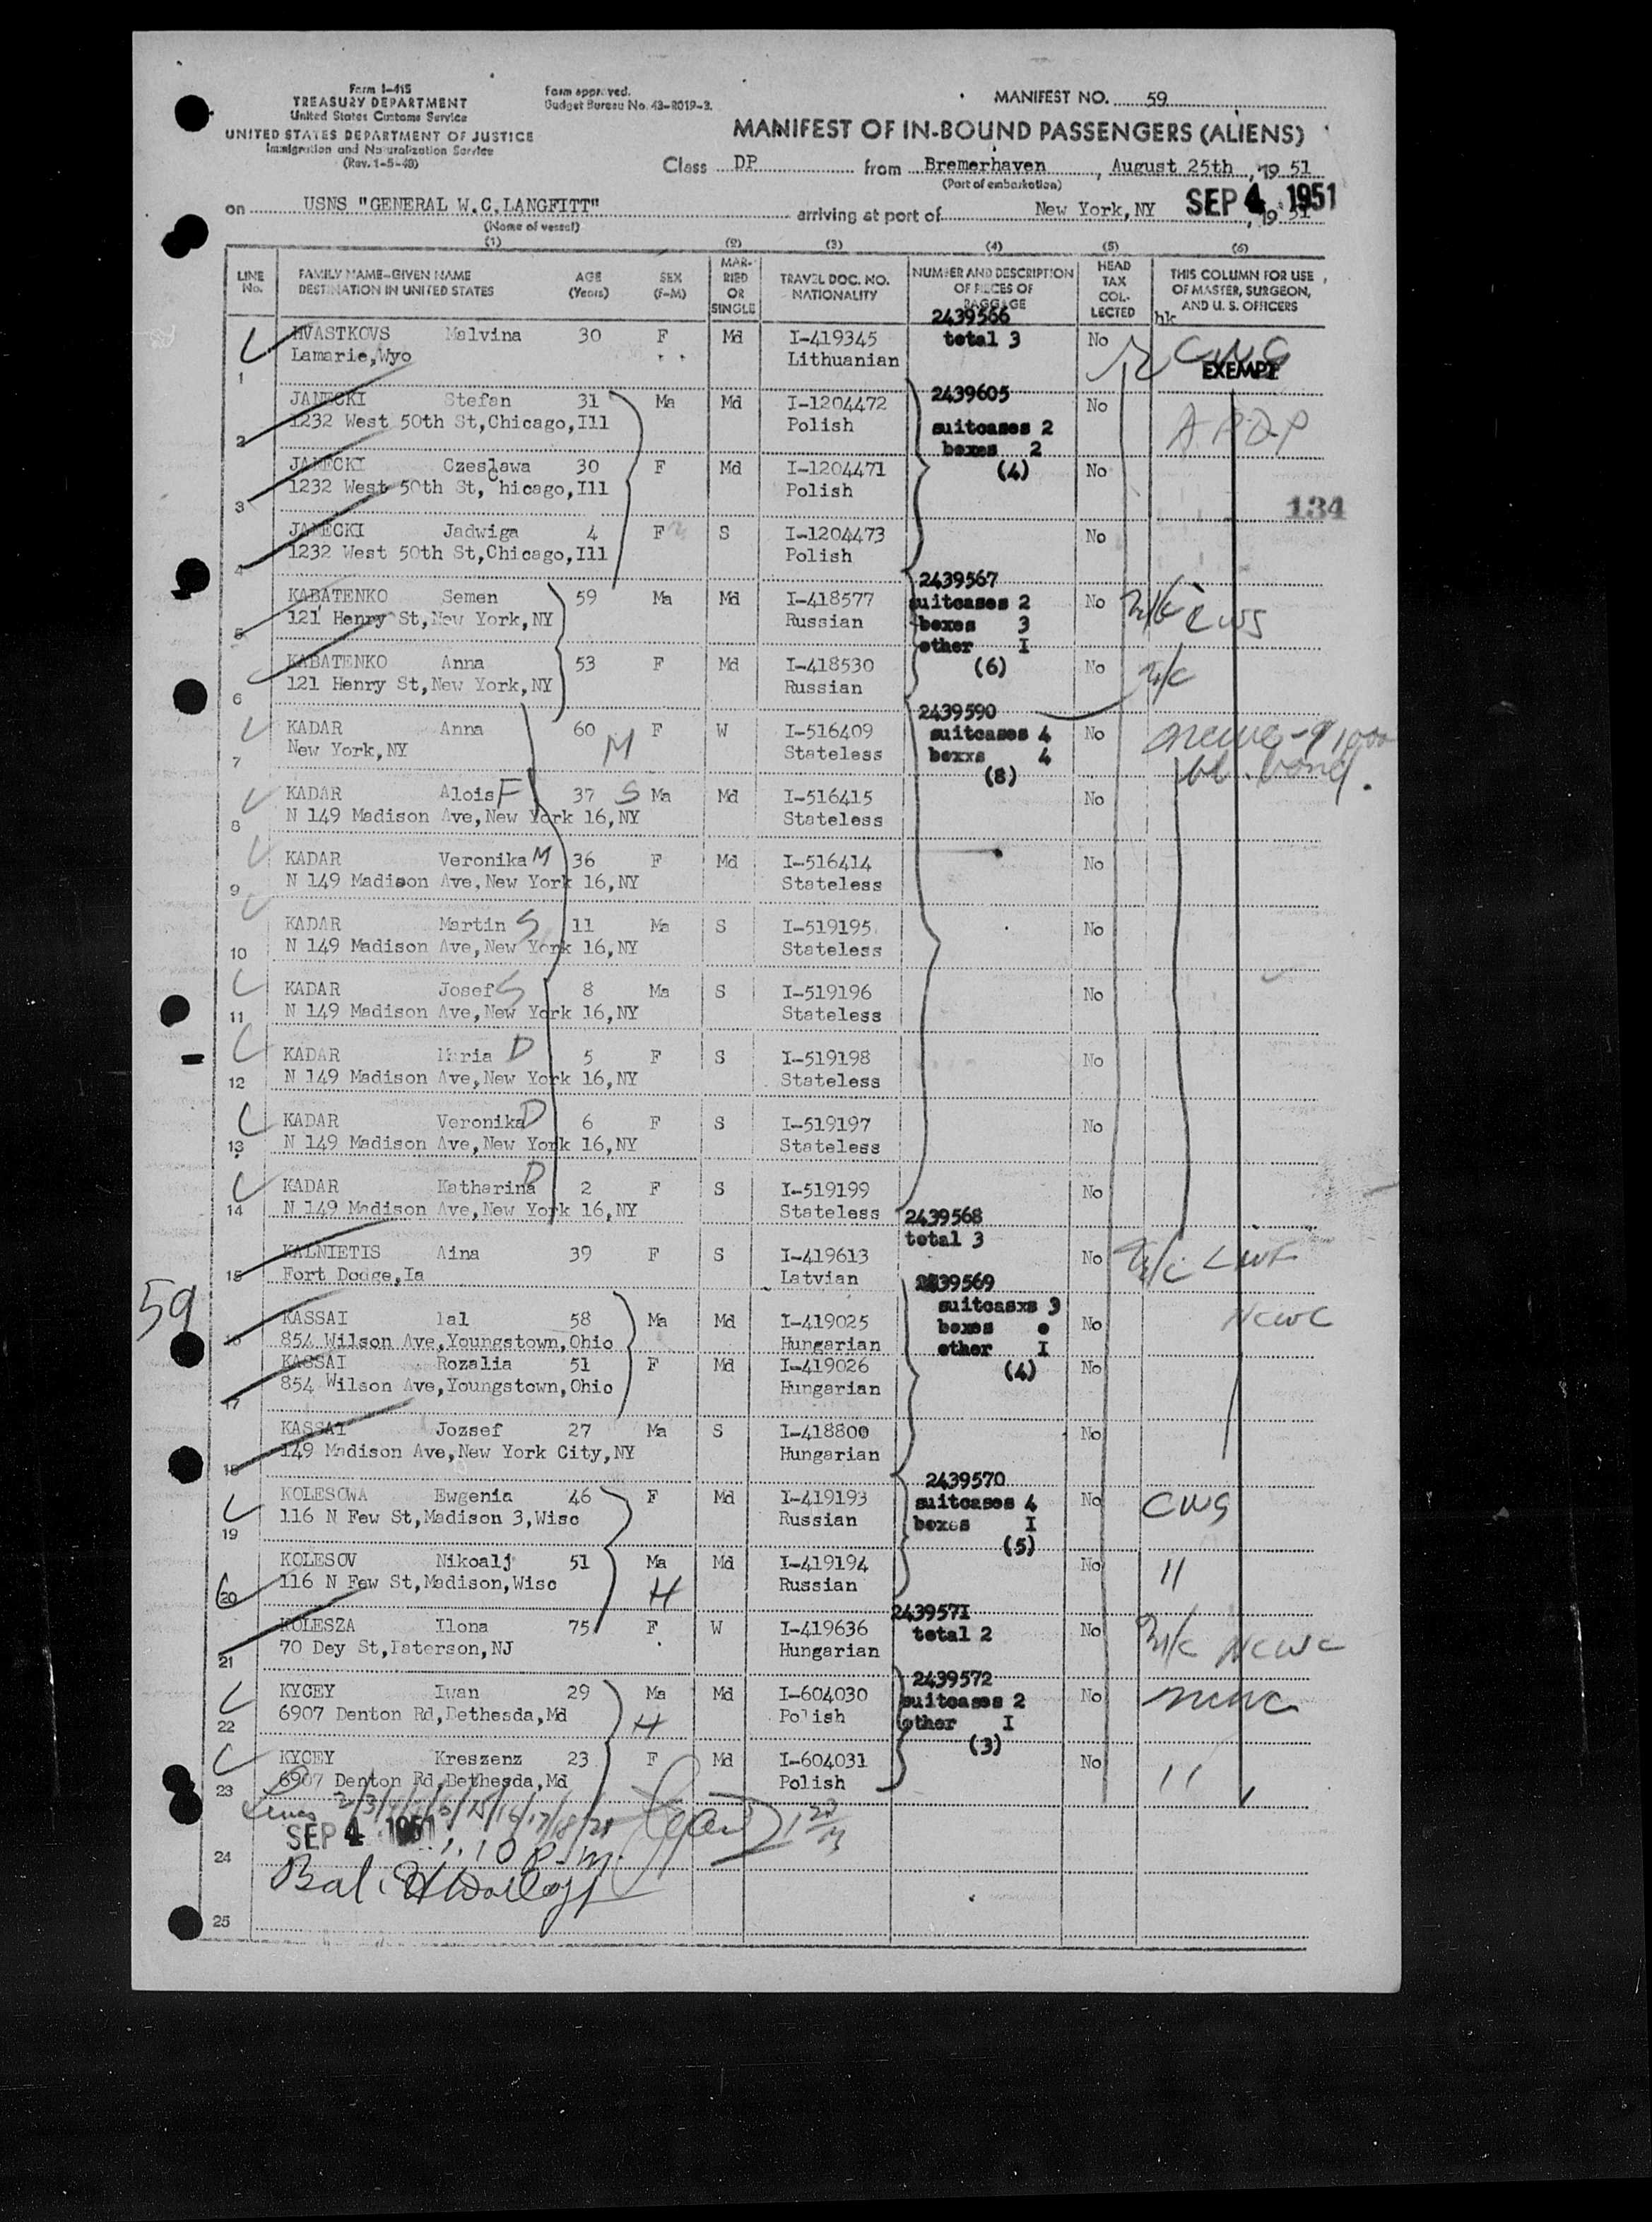 Form I-415
TREASURY DEPARTMENT
United States Customs Service
UNITED STATES DEPARTMENT OF JUSTICE
Immigration and Naturalization Service
(Rev. 1-5-48)
Form approved.
Budget Bureau No. 43-R019-2.
MANIFEST NO. 59
MANIFEST OF IN-BOUND PASSENGERS (ALIENS)
Class DP from Bremerhaven, August 25th, 19 51
(Port of embarkation)
on USNS "GENERAL W.C.LANGFITT" arriving at port of New York,NY SEP 4 1951, 19 51
(Name of vessel)
(1) (2) (3) (4) (5) (6)
LINE No. FAMILY NAME-GIVEN NAME DESTINATION IN UNITED STATES AGE (Years) SEX (F-M) MARRIED OR SINGLE TRAVEL DOC. NO. NATIONALITY NUMBER AND DESCRIPTION OF PIECES OF BAGGAGE HEAD TAX COLLECTED THIS COLUMN FOR USE OF MASTER, SURGEON, AND U. S. OFFICERS
2439566 hk
HVASTKOVS Malvina 30 F Md I-419345 total 3 No CWS
1 Lamarie,Wyo Lithuanian EXEMPT
JANECKI Stefan 31 Ma Md I-1204472 2439605 No
2 1232 West 50th St,Chicago,Ill Polish suitcases 2 APDP
boxes 2
JANECKI Czeslawa 30 F Md I-1204471 (4) No
3 1232 West 50th St,Chicago,Ill Polish
134
JANECKI Jadwiga 4 F S I-1204473 No
4 1232 West 50th St,Chicago,Ill Polish
2439567
KABATENKO Semen 59 Ma Md I-418577 suitcases 2 No n/c CWS
5 121 Henry St,New York,NY Russian boxes 3
other I
KABATENKO Anna 53 F Md I-418530 (6) No n/c
6 121 Henry St,New York,NY Russian
2439590
KADAR Anna 60 M F W I-516409 suitcases 4 No ncwc
7 New York,NY Stateless boxxs 4 bond.
(8)
KADAR Alois F 37 S Ma Md I-516415 No
8 N 149 Madison Ave,New York 16,NY Stateless
KADAR Veronika M 36 F Md I-516414 No
9 N 149 Madison Ave,New York 16,NY Stateless
KADAR Martin S 11 Ma S I-519195 No
10 N 149 Madison Ave,New York 16,NY Stateless
KADAR Josef S 8 Ma S I-519196 No
11 N 149 Madison Ave,New York 16,NY Stateless
KADAR Maria D 5 F S I-519198 No
12 N 149 Madison Ave,New York 16,NY Stateless
KADAR Veronika D 6 F S I-519197 No
13 N 149 Madison Ave,New York 16,NY Stateless
KADAR Katharina D 2 F S I-519199 No
14 N 149 Madison Ave,New York 16,NY Stateless
2439568
total 3
KALNIETIS Aina 39 F S I-419613 No n/c LWF
15 Fort Dodge,Ia Latvian
59
2439569
suitcasxs 3
KASSAI Pal 58 Ma Md I-419025 boxes o No NCWC
16 854 Wilson Ave,Youngstown,Ohio Hungarian other I
KASSAI Rozalia 51 F Md I-419026 (4) No
17 854 Wilson Ave,Youngstown,Ohio Hungarian
KASSAI Jozsef 27 Ma S I-418800 No
18 149 Madison Ave,New York City,NY Hungarian
2439570
KOLESOWA Ewgenia 46 F Md I-419193 suitcases 4 No CWS
19 116 N Few St,Madison 3,Wisc Russian boxes I
(5)
KOLESOV Nikoalj 51 Ma Md I-419194 No "
20 116 N Few St,Madison,Wisc H Russian
2439571
KOLESZA Ilona 75 F W I-419636 total 2 No n/c NCWC
21 70 Dey St,Paterson,NJ Hungarian
2439572
KYCEY Iwan 29 Ma Md I-604030 suitcases 2 No ncwc
22 6907 Denton Rd,Bethesda,Md H Polish other I
(3)
KYCEY Kreszenz 23 F Md I-604031 No "
23 6907 Denton Rd,Bethesda,Md Polish
Lines 2/3/4/5/6/15/16/17/18/21
SEP 4 1951 1:10 p.m.
24
Bal.
25